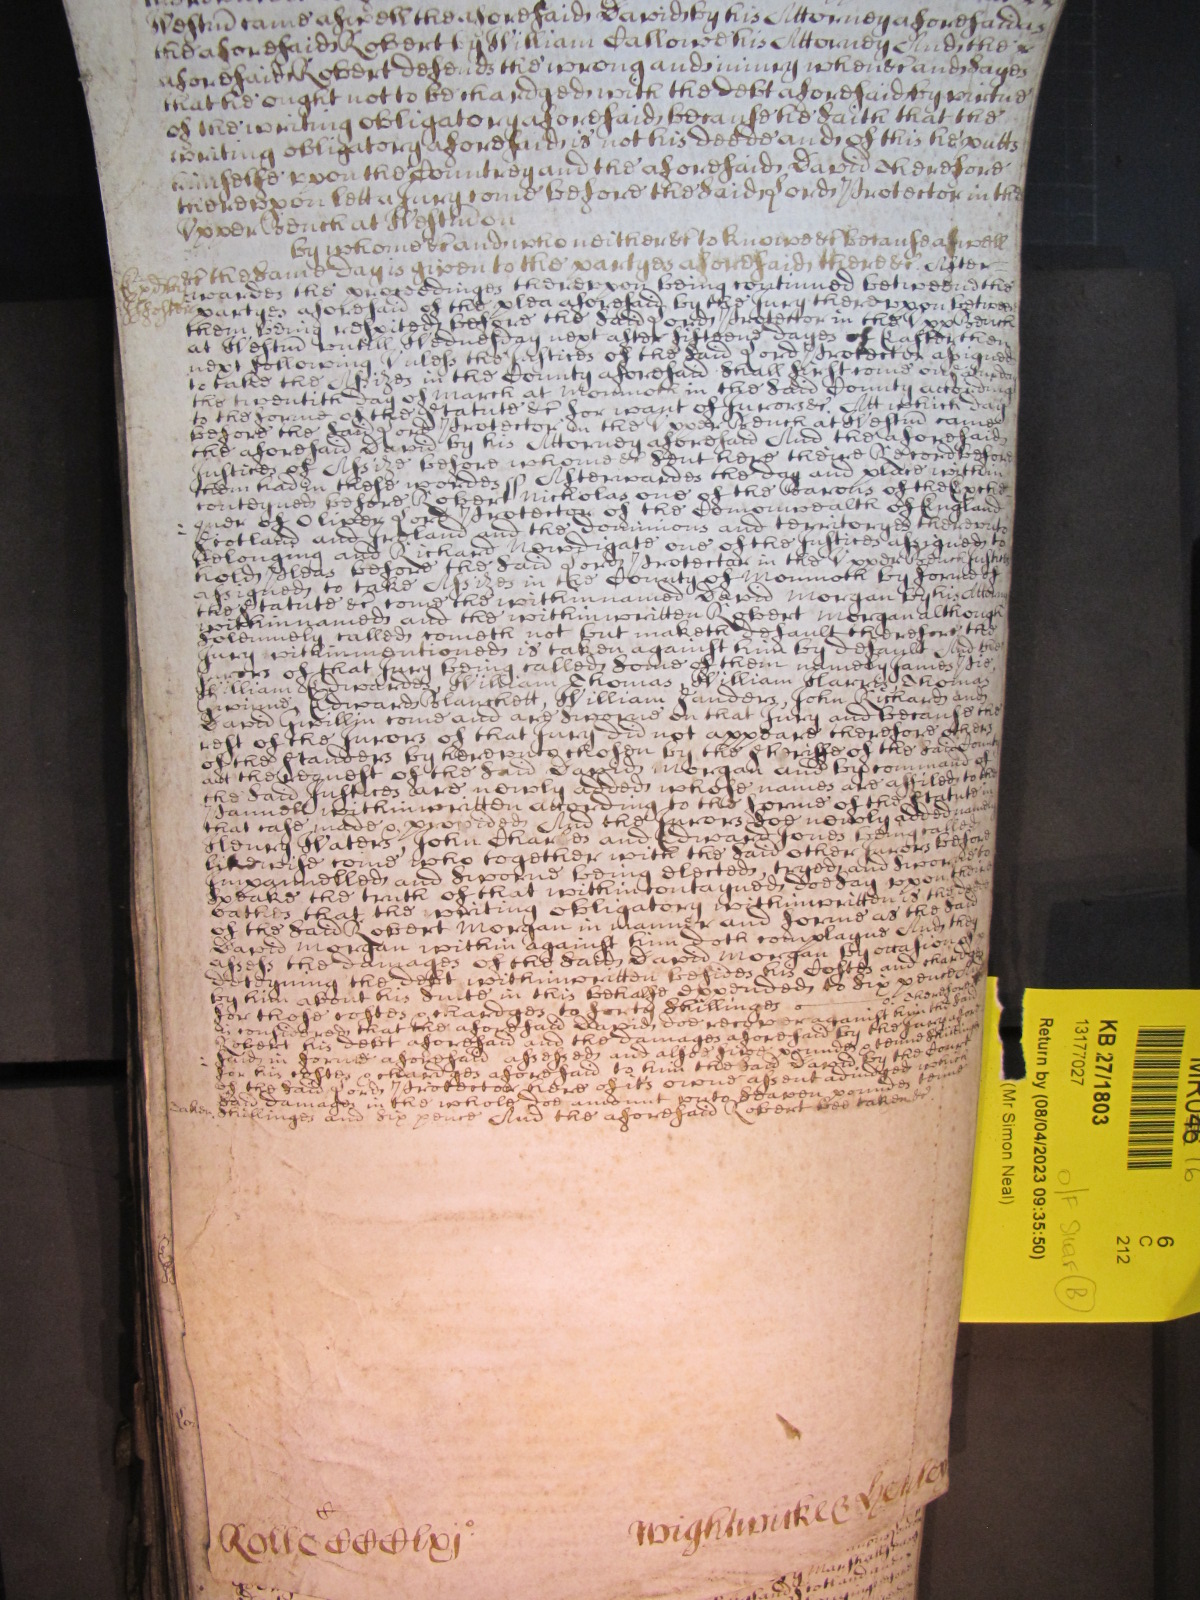 Westm came aswell the aforesaid David by his Attorney aforesaid as
the aforesaid Robert by William Callowe his Attorney And the
aforesaid Robert defends the wrong and iniury when &c and sayes
that he ought not to be chardged with the debt aforesaid by virtue
of the writing obligatory aforesaid because hee saith that the
writing obligatory aforesaid is not his deede and of this he putts
himselfe vpon the Countrey and the aforesaid David Therefore
therevpon lett a Jury come before the said Lord Protector in the
Vpper Bench at Westm on
by whome &c and who neither &c to knowe &c because aswell
&c the same day is given to the partyes aforesaid there &c. After-
wardes the proceedinges therevpon being continued betweene the
partyes aforesaid of the plea aforesaid by the Jury therevpon betweene
them being respited before the said Lord Protector in the Vpper Bench
at Westm vntill Wednesday next after fifteene dayes of Easter then
next following Vnless the Justices of the said Lord Protector assigned
to take the Assizes in the County aforesaid shall first come on
the twentith day of March at Monmoth in the said County according
to the forme of the Statute &c for want of Jurors &c. Att which day
before the said Lord Protector in the Vpper Bench at Westm came
the aforesaid David by his Attorney aforesaid And the aforesaid
Justices of Assize before whome &c sent here theire Record before
them had in these wordes ss Afterwardes the day and place within
conteyned before Robert Nicholas one of the Barons of the Exche-
quer of Oliver Lord Protector of the Comonwealth of England
Scotland and Ireland and the dominions and territoryes therevnto
belonging and Richard Newdigate one of the Justices assigned to
hold Pleas before the said Lord Protector in the Vpper Bench Justices
assigned to take Assizes in the County of Monmoth by forme of
the Statute &c come the withinnamed David Morgan by his Attorney
withinnamed and the withinwritten Robert Morgan although
solemnely called cometh not but maketh default therefore the
Jury withinmentioned is taken against him by default And the
Jurors of that Jury being called some of them namely James
William Edwardes, William Thomas, William Harry, Thomas
Edward Blanchett, William Sanders, John Rickard and
David Gwillin come and are sworne on that Jury and because the
rest of the Jurors of that Jury did not appeare therefore others
of the standers by herevnto chosen by the Sheriffe of the said County
att the request of the said David Morgan and by command of
the said Justices are newly added whose names are affiled to the
Pannell withinwritten according to the forme of the Statute in
that case made & provided And the Jurors soe newly added namely
Henry Waters, John Charles and Edward Jones being called
likewise come who together with the said other Jurors before
impannelled and sworne being elected, tryed and sworne to
speake the truth of that within conteyned doe say vpon their
oathes that the writing obligatory withinwritten is the deed
of the said Robert Morgan in manner and forme as the said
David Morgan within against him doth complayne And they
assess the damages of the said David Morgan by occasion of
deteyning the debt withinwritten besides his Costes and chardges
by him about his suite in this behalfe expended to six pence And
for those costes & chardges to forty shillinges Therefore it
is considered that the aforesaid David doe recover against him the said
Robert his debt aforesaid and the damages aforesaid by the Jury afore
said in forme aforesaid assessed and alsoe five poundes & tenne shillinges
for his costes & chardges aforesaid to him the said David by the Court
of the said Lord Protector here of its owne assent adiudged which
said damages in the whole doe amount vnto seaven poundes tenne
shillinges and six pence And the aforesaid Robert bee taken &c
Rolle CCCClxj°
Wightwicke &
MR046
KB 27/1803
13177027
Return by (08/04/2023 09:35:50)
(Mr Simon Neal)
6
C
212
O/F
B